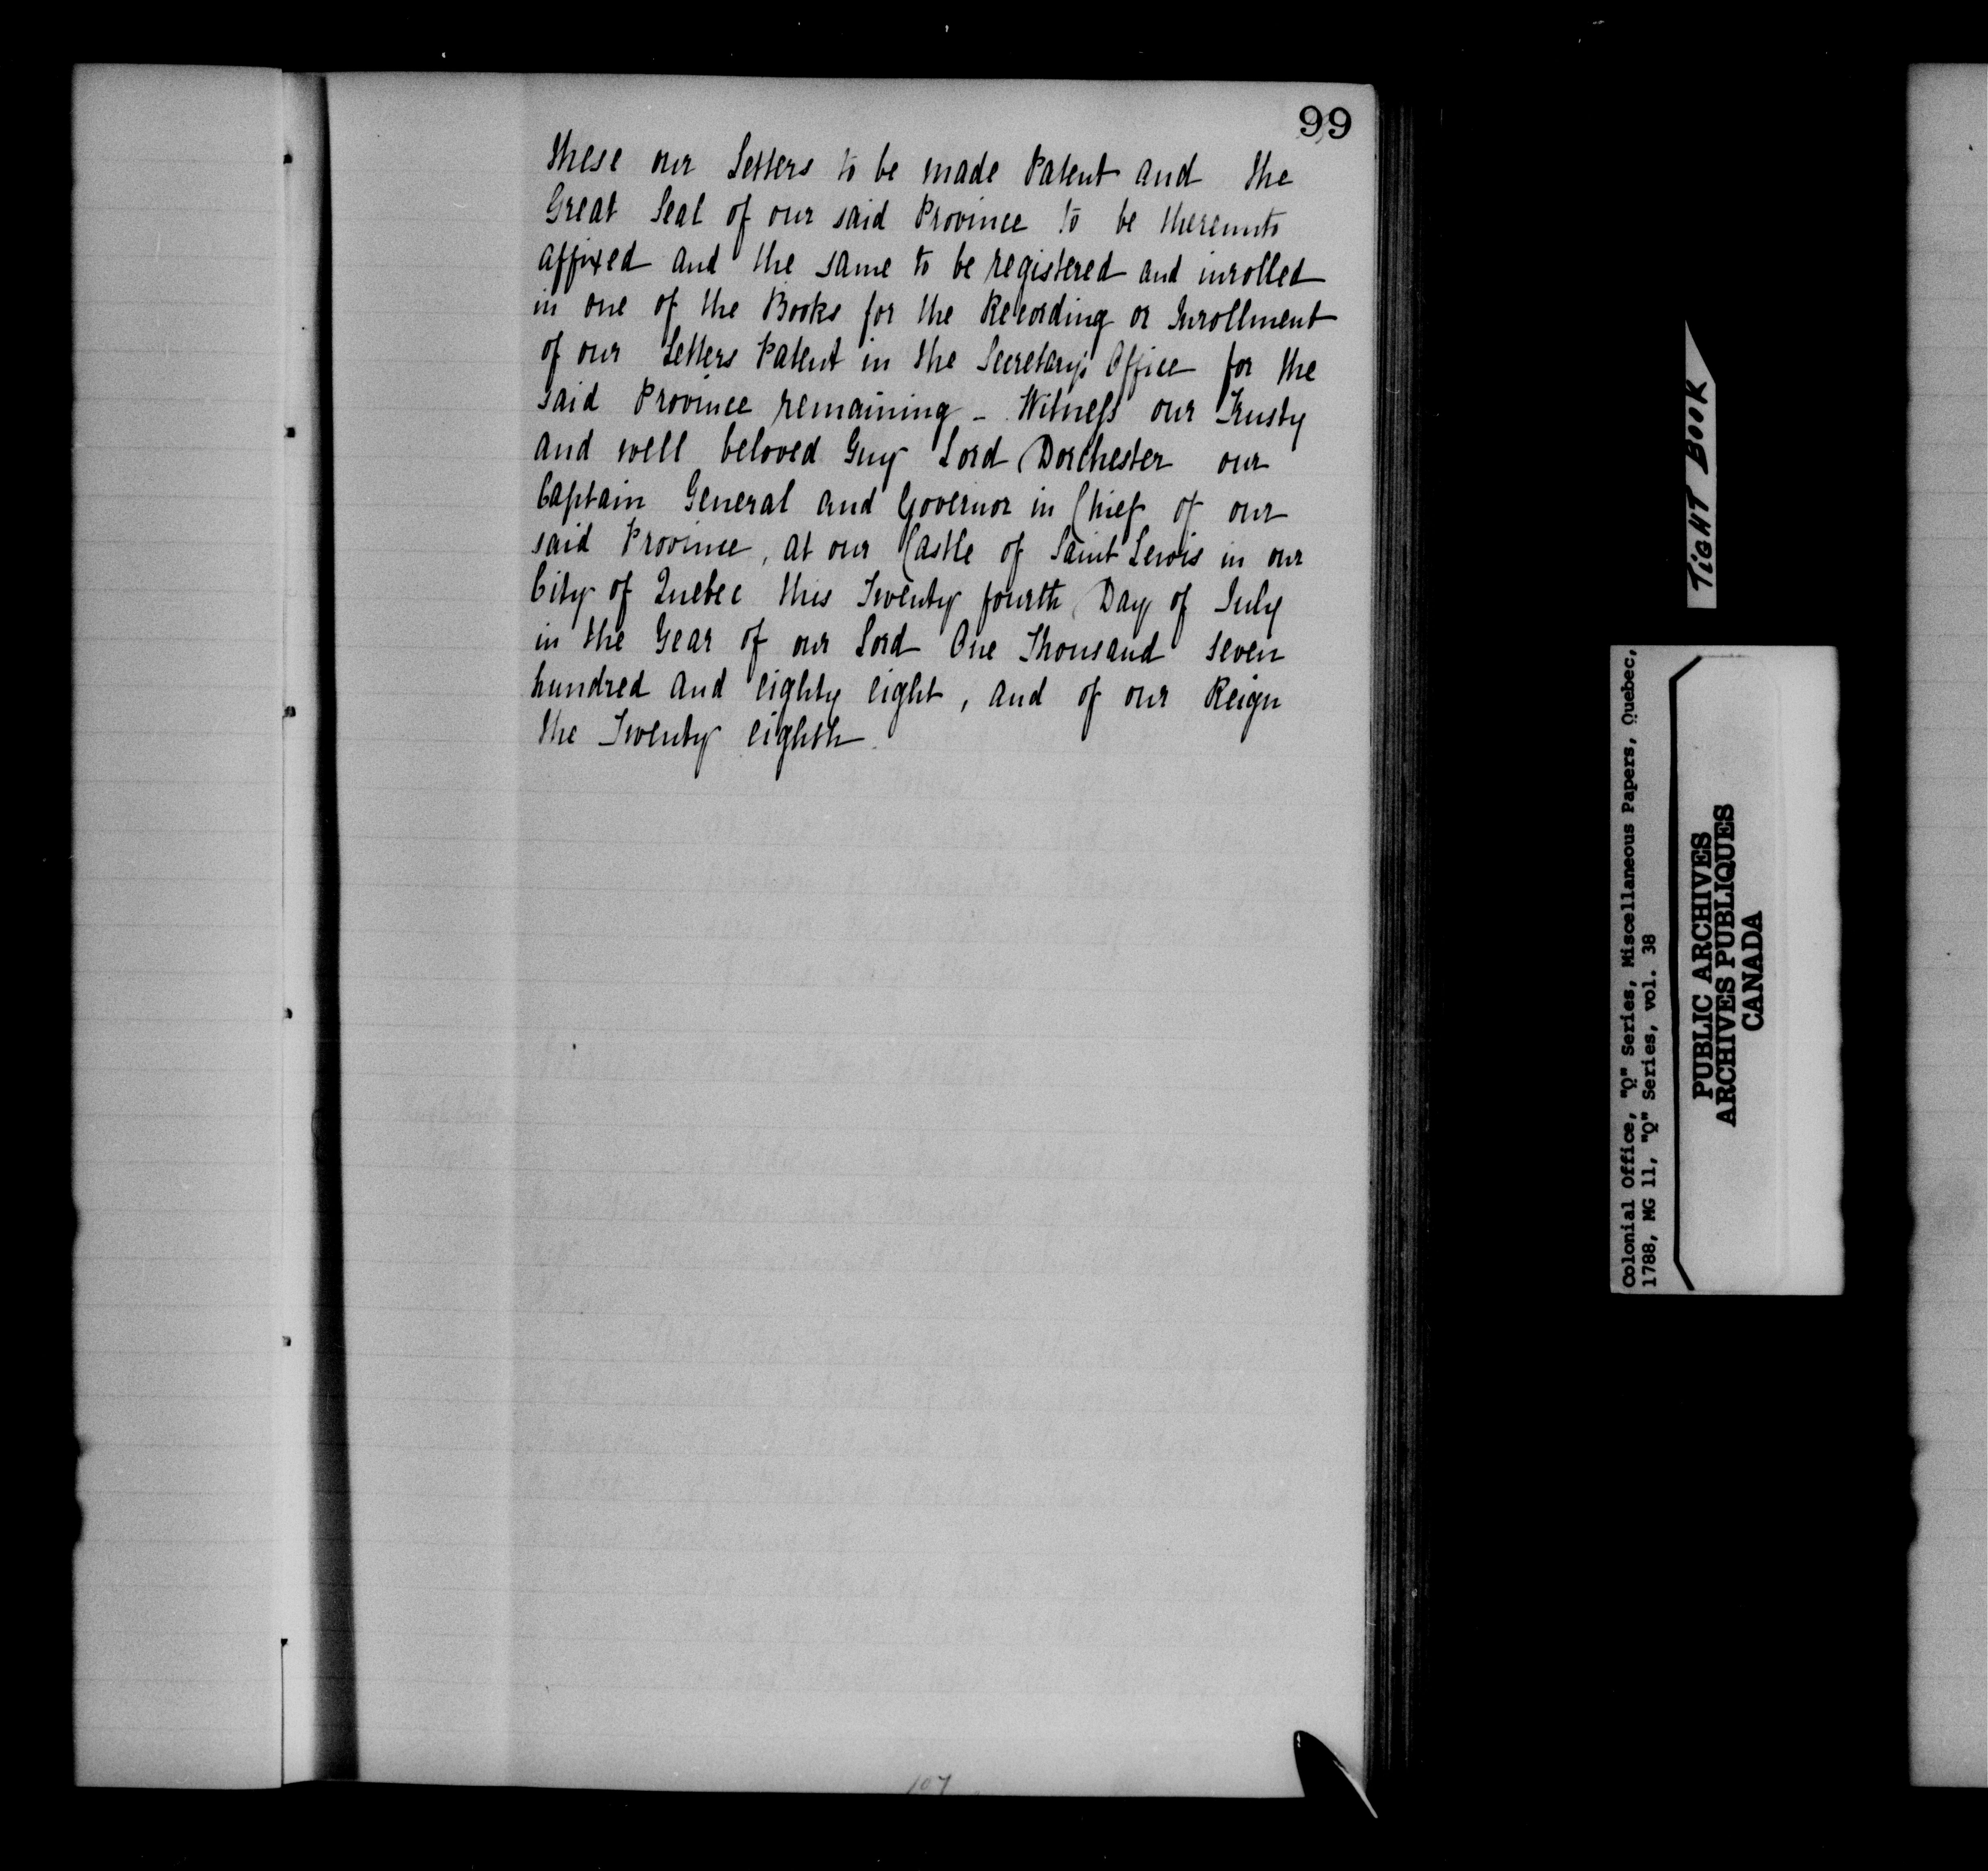 99
these our Letters to be made Patent and the
Great Seal of our said Province to be thereunto
affixed and the same to be registered and inrolled
in one of the Books for the Recording or Inrollment
of our Letters Patent in the Secretary's Office for the
said Province remaining - Witness our Trusty
and well beloved Guy Lord Dorchester our
Captain General and Governor in Chief of our
said Province, at our Castle of Saint Lewis in our
City of Quebec this Twenty fourth Day of July
in the Year of our Lord One Thousand seven
hundred and eighty eight, and of our Reign
the Twenty eighth.
107
TIGHT BOOK
Colonial Office, "Q" Series, Miscellaneous Papers, Quebec,
1788, MG 11, "Q" Series, vol. 38
PUBLIC ARCHIVES
ARCHIVES PUBLIQUES
CANADA